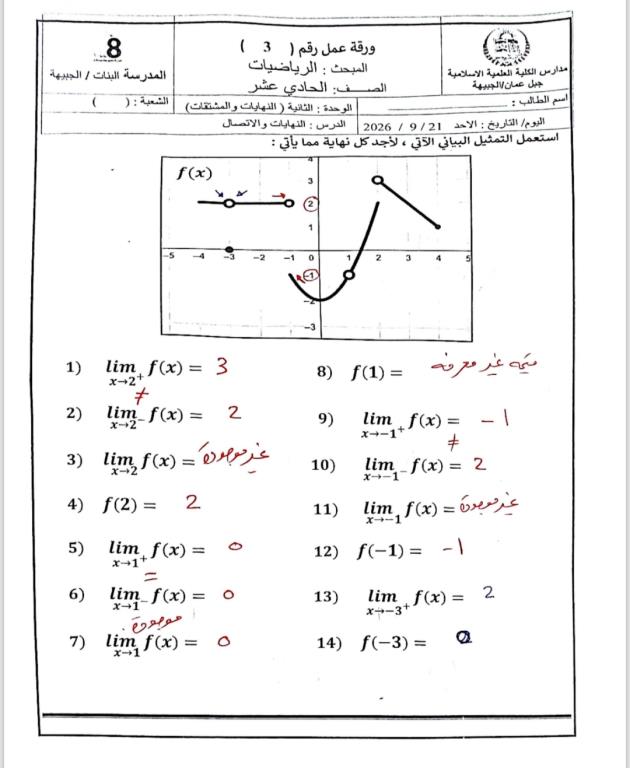 مدارس الكلية العلمية الاسلامية
جبل عمان/الجبيهة
ورقة عمل رقم ( 3 )
المبحث : الرياضيات
الصـــف: الحادي عشر
8
المدرسة البنات / الجبيهة
اسم الطالب :
الوحدة : الثانية ( النهايات والمشتقات)
الشعبة : ( )
اليوم/ التاريخ : الاحد 21/ 9 / 2026
الدرس : النهايات والاتصال
استعمل التمثيل البياني الآتي ، لأجد كل نهاية مما يأتي :
f(x)
4
3
2
1
-5 -4 -3 -2 -1 0 1 2 3 4 5
-1
-2
-3
1) lim x→2⁺ f(x) = 3
≠
2) lim x→2⁻ f(x) = 2
3) lim x→2 f(x) = غير موجودة
4) f(2) = 2
5) lim x→1⁺ f(x) = 0
=
6) lim x→1⁻ f(x) = 0
موجودة
7) lim x→1 f(x) = 0
8) f(1) = غير معرفه
9) lim x→-1⁺ f(x) = -1
≠
10) lim x→-1⁻ f(x) = 2
11) lim x→-1 f(x) = غير موجودة
12) f(-1) = -1
13) lim x→-3⁺ f(x) = 2
14) f(-3) =